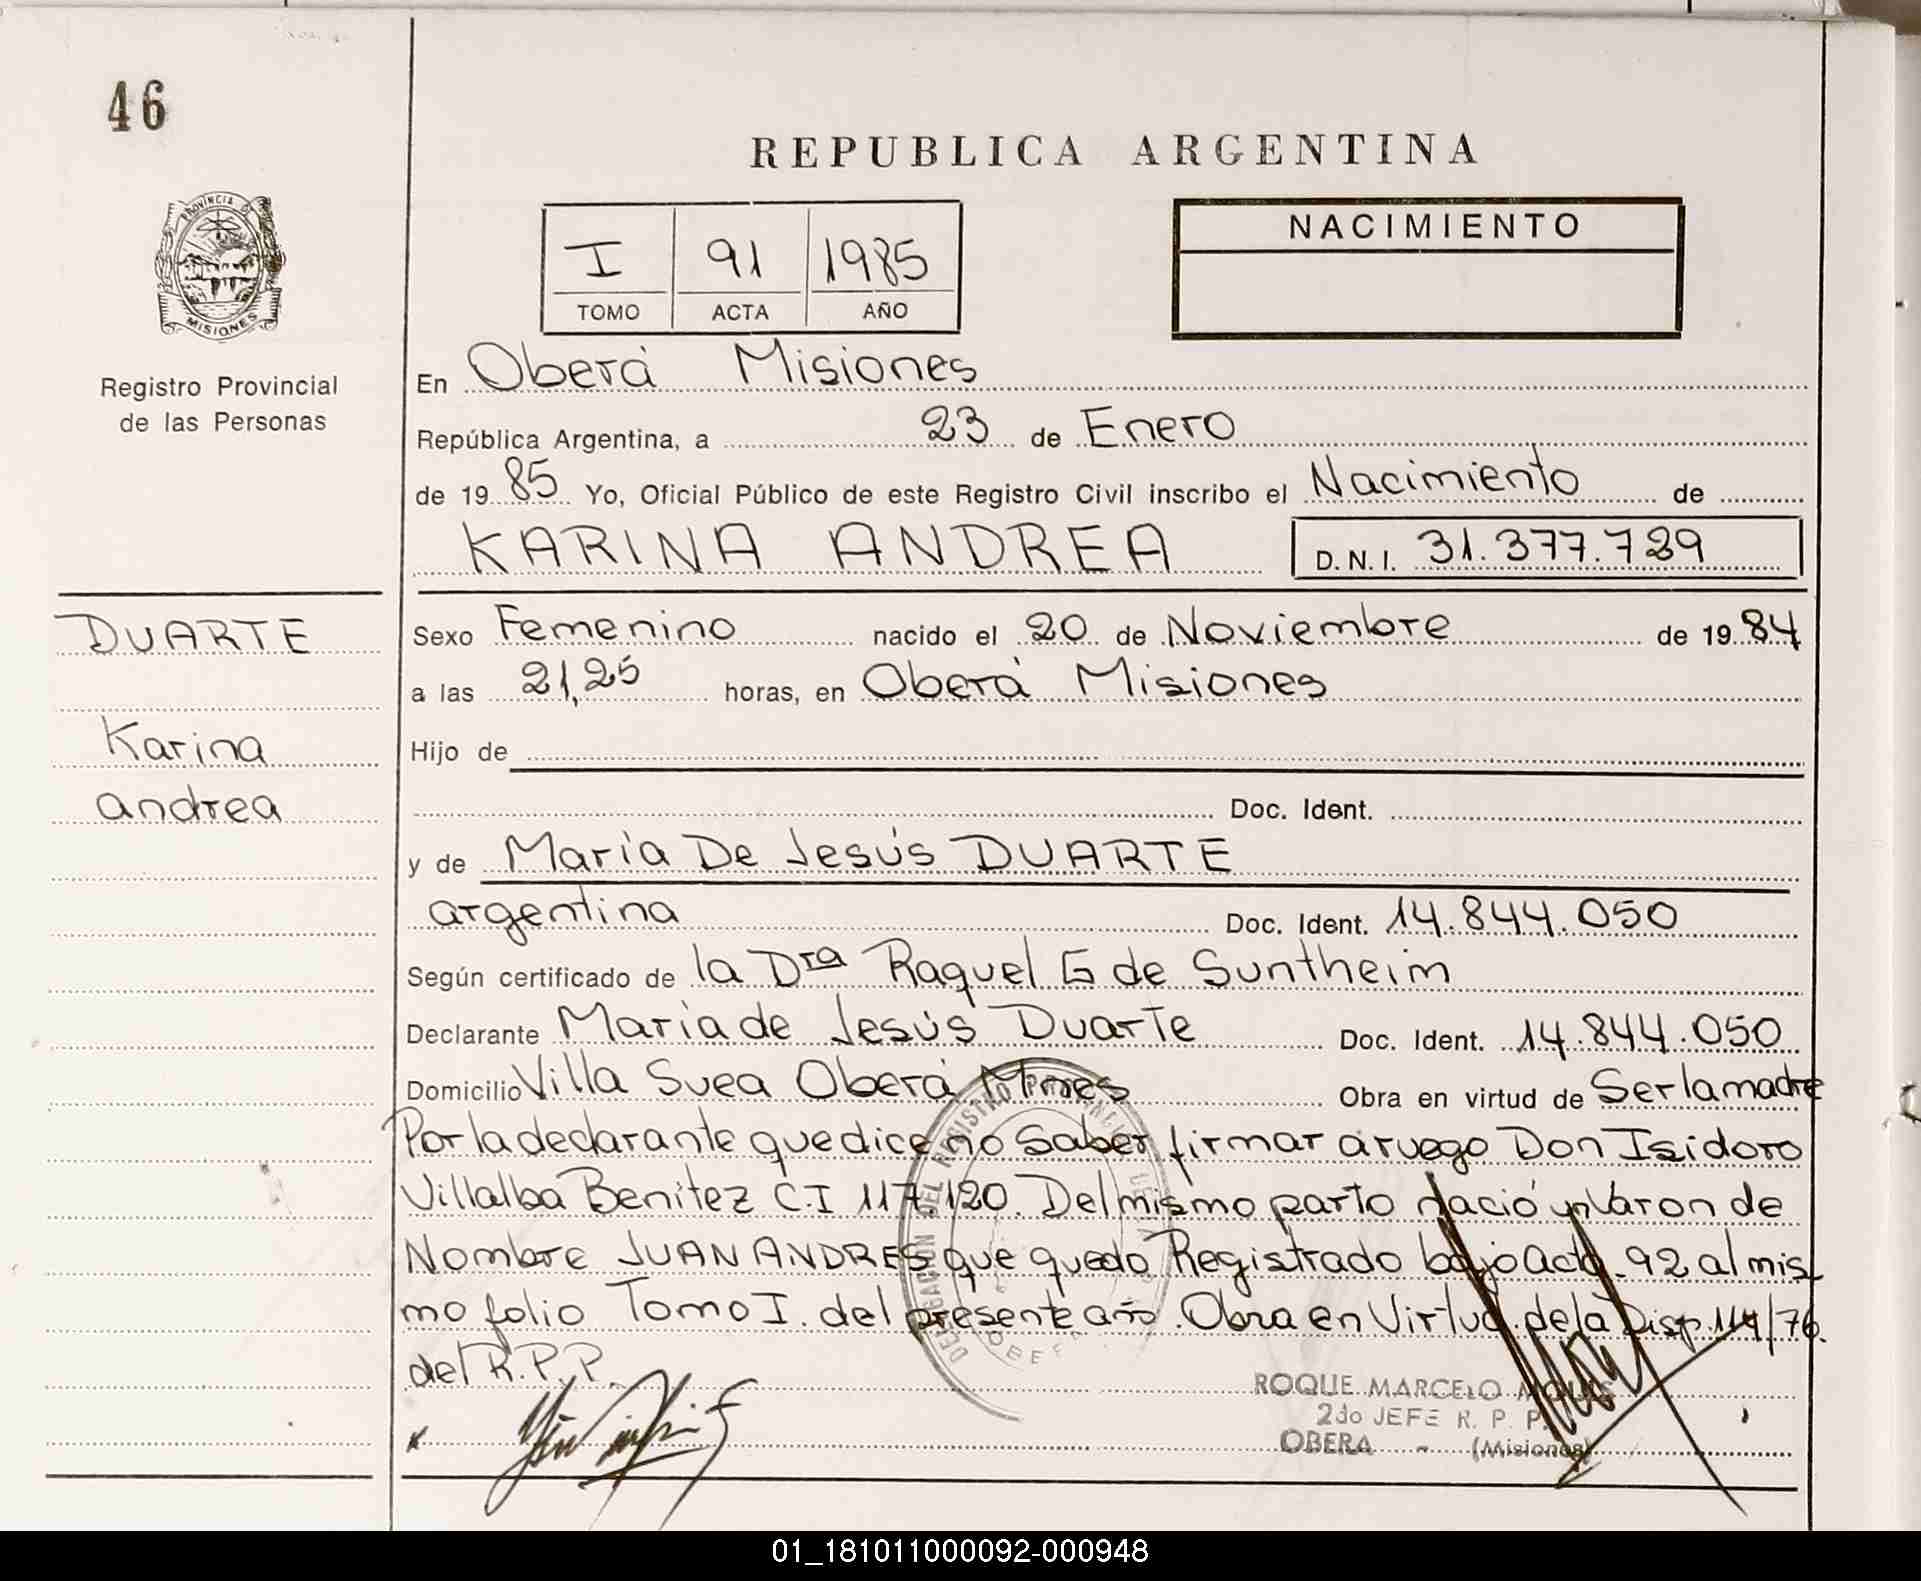 46
REPUBLICA ARGENTINA
PROVINCIA D
MISIONES
Registro Provincial
de las Personas
I 91 1985
TOMO ACTA AÑO
NACIMIENTO
En Oberá Misiones
República Argentina, a 23 de Enero
de 19 85 Yo, Oficial Público de este Registro Civil inscribo el Nacimiento de
KARINA ANDREA D.N.I. 31.377.729
DUARTE
Karina
andrea
Sexo Femenino nacido el 20 de Noviembre de 19 84
a las 21,25 horas, en Oberá Misiones
Hijo de
Doc. Ident.
y de María De Jesús DUARTE
argentina Doc. Ident. 14.844.050
Según certificado de la Dra Raquel G de Suntheim
Declarante María de Jesús Duarte Doc. Ident. 14.844.050
Domicilio Villa Svea Oberá Mnes Obra en virtud de Ser la madre
Por la declarante que dice no Saber firmar a ruego Don Isidoro
Villalba Benitez C.I 117.120. Del mismo parto nació un Varon de
Nombre JUAN ANDRES que quedo Registrado bajo Acta 92 al mis
mo folio Tomo I. del presente año. Obra en Virtud de la Disp. 114/76.
del R.P.P.
DELEGACION DEL REGISTRO PROVINCIAL DE
OBERA
ROQUE MARCELO
2do JEFE R. P. P.
OBERA - (Misiones)
01_181011000092-000948